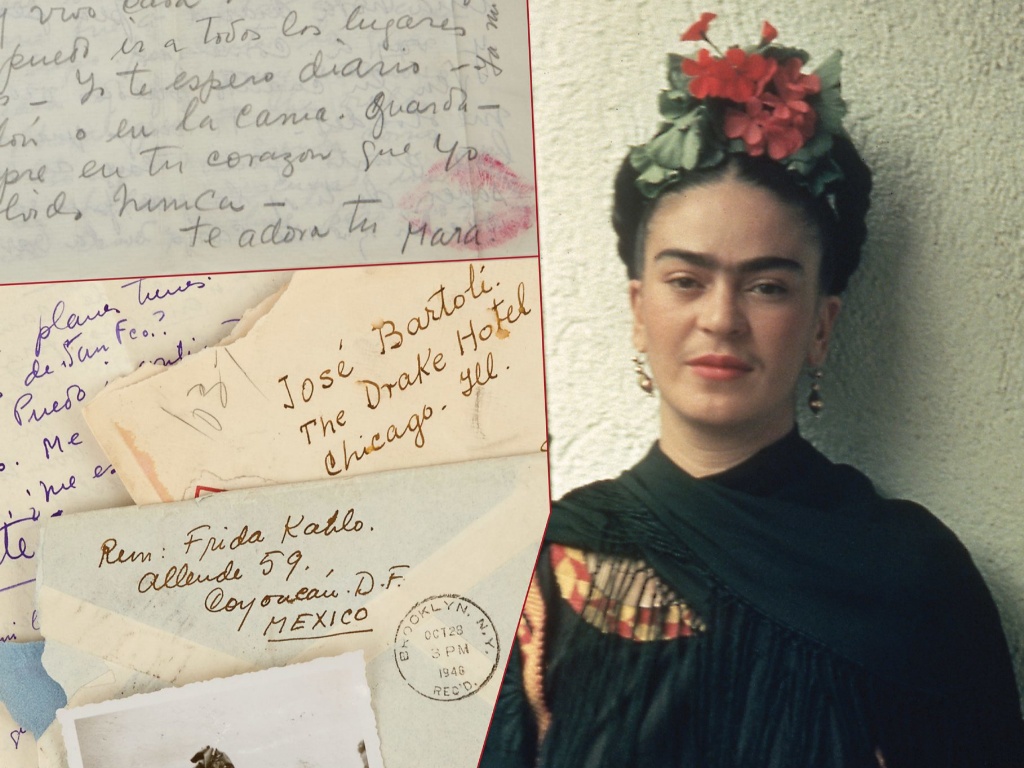 y vivo cada
puedo ir a todos los lugares
- Yo te espero diario -
o en la cama. Guarda-
pre en tu corazon que yo
lvido nunca -
te adora tu Mara.
planes tienes
de San Fco.?
Puedo
Me
¡me es
te
José Bartolí.
The Drake Hotel
Chicago. Ill.
Rem: Frida Kahlo.
Allende 59.
Coyoacán. D.F.
MEXICO
BROOKLYN, N.Y.
OCT 28
3 PM
1946
REC'D.